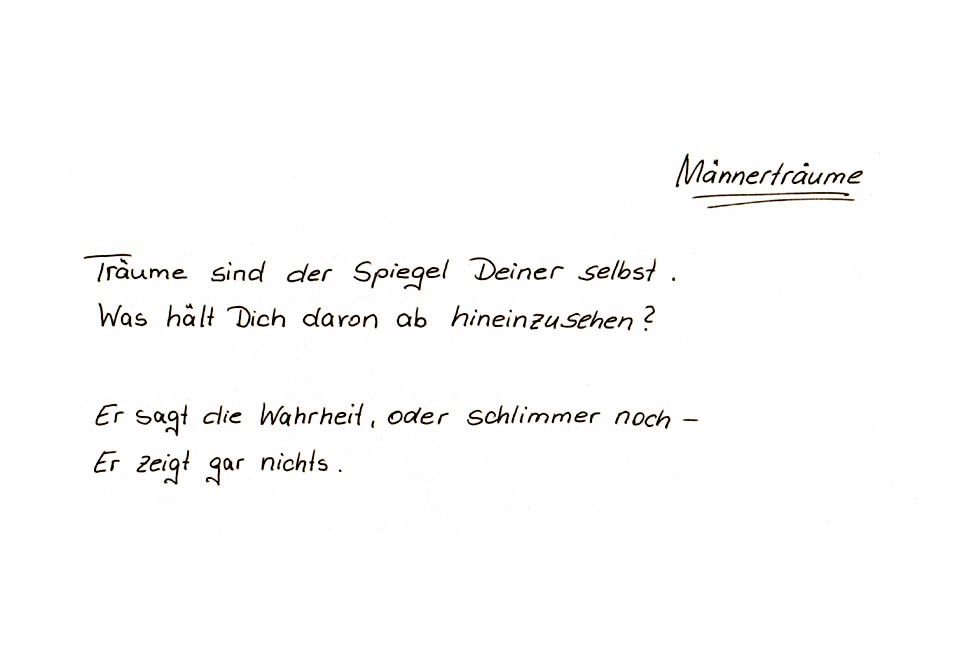 Männerträume
Träume sind der Spiegel Deiner selbst.
Was hält Dich davon ab hineinzusehen?
Er sagt die Wahrheit, oder schlimmer noch –
Er zeigt gar nichts.